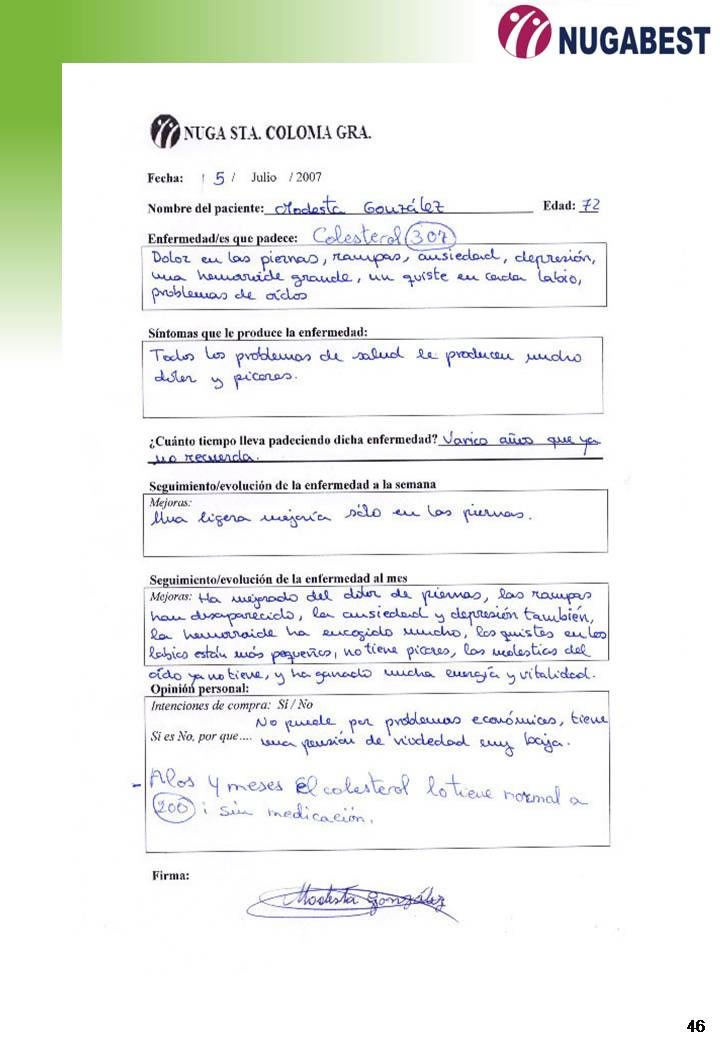 NUGABEST
NUGA STA. COLOMA GRA.
Fecha: 5 / Julio / 2007
Nombre del paciente: Modesta González Edad: 72
Enfermedad/es que padece: Colesterol 307
Dolor en las piernas, rampas, ansiedad, depresión,
una hemorroide grande, un quiste en cada labio,
problemas de oídos
Síntomas que le produce la enfermedad:
Todos los problemas de salud le producen mucho
dolor y picores.
¿Cuánto tiempo lleva padeciendo dicha enfermedad? Varios años que ya
no recuerda.
Seguimiento/evolución de la enfermedad a la semana
Mejoras:
Una ligera mejoría sólo en las piernas.
Seguimiento/evolución de la enfermedad al mes
Mejoras: Ha mejorado del dolor de piernas, las rampas
han desaparecido, la ansiedad y depresión también,
la hemorroide ha encogido mucho, los quistes en los
labios están más pequeños, no tiene picores, las molestias del
oído ya no tiene, y ha ganado mucha energía y vitalidad.
Opinión personal:
Intenciones de compra: Si / No
No puede por problemas económicos, tiene
Si es No, por que.... una pensión de viudedad muy baja.
- A los 4 meses El colesterol lo tiene normal a
200 ¡ sin medicación.
Firma:
Modesta González
46